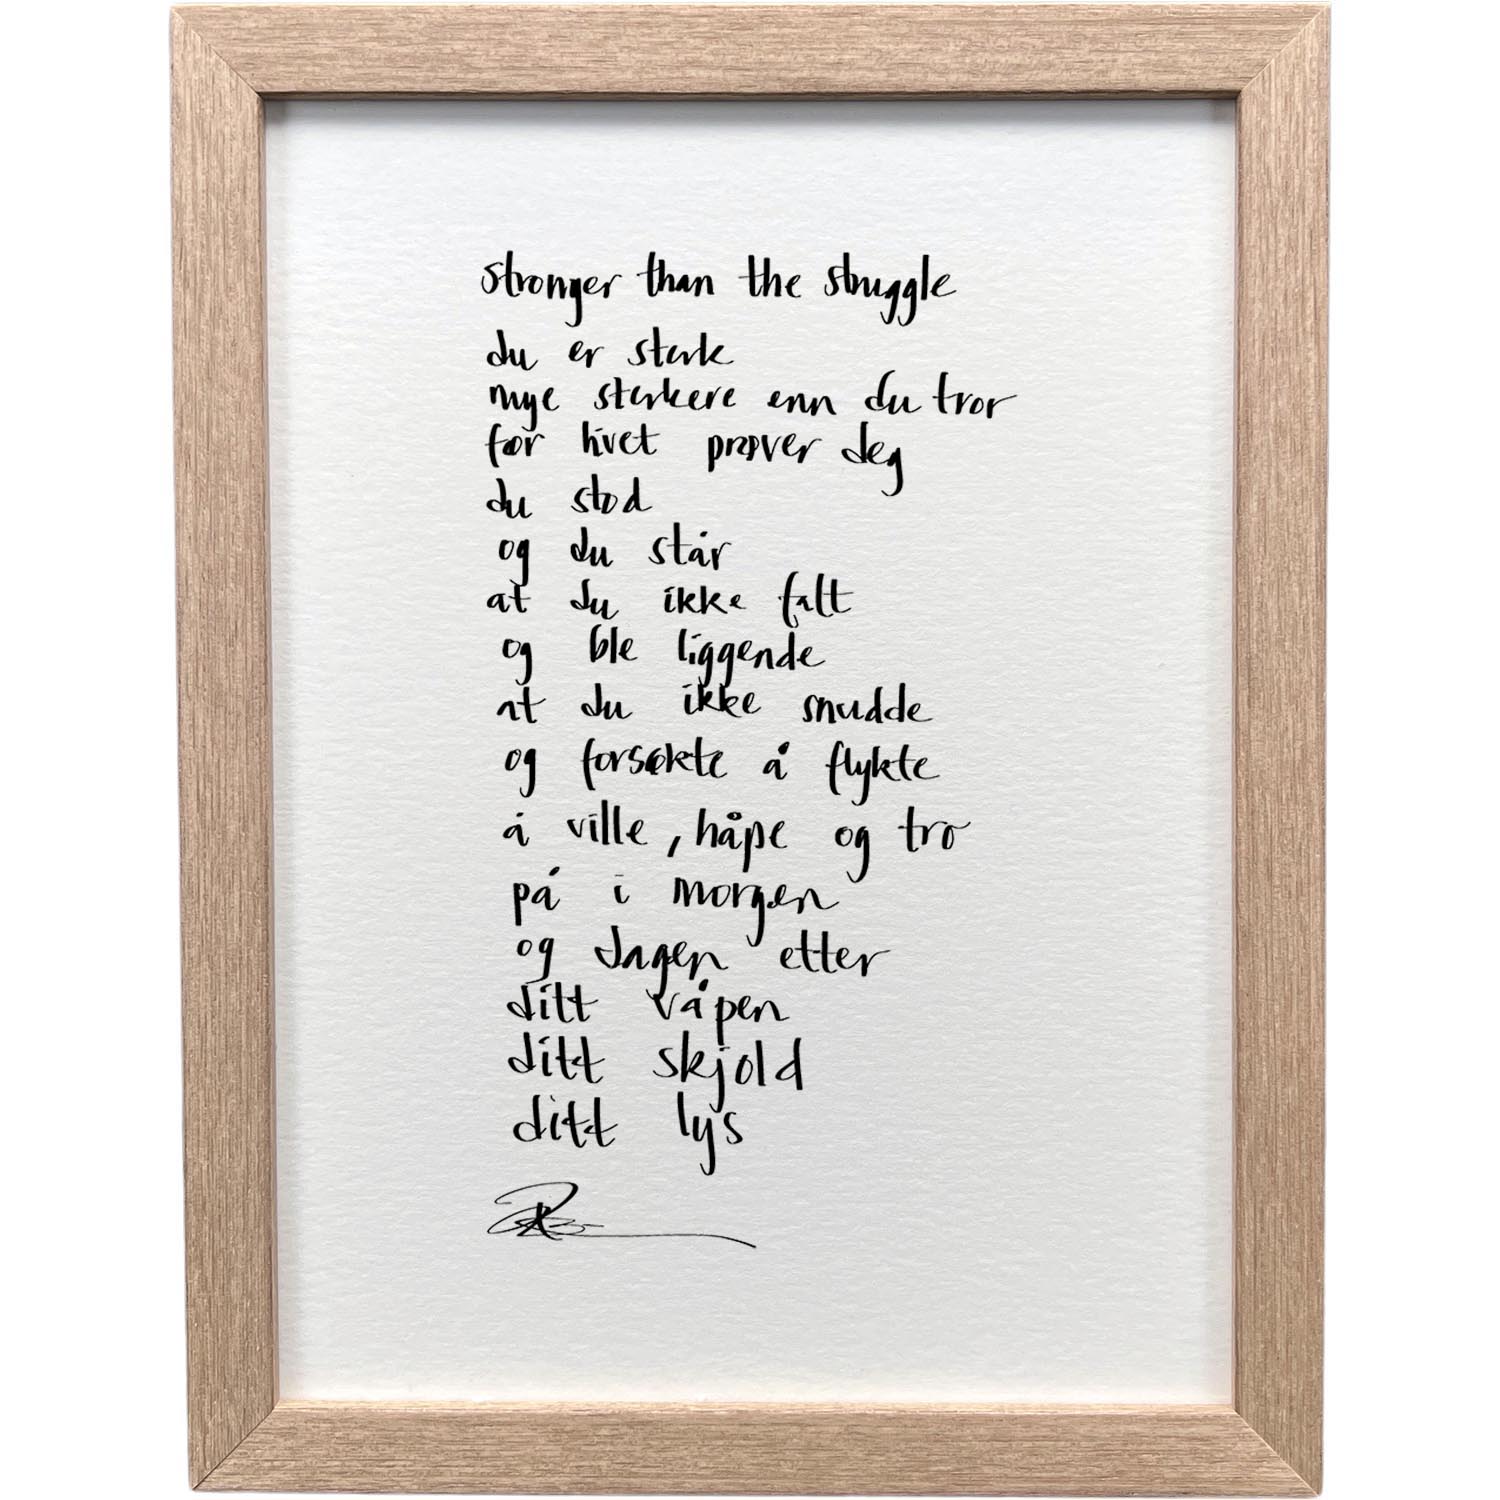 stronger than the struggle
du er sterk
mye sterkere enn du tror
før livet prøver deg
du stod
og du står
at du ikke falt
og ble liggende
at du ikke snudde
og forsøkte å flykte
å ville, håpe og tro
på i morgen
og dagen etter
ditt våpen
ditt skjold
ditt lys